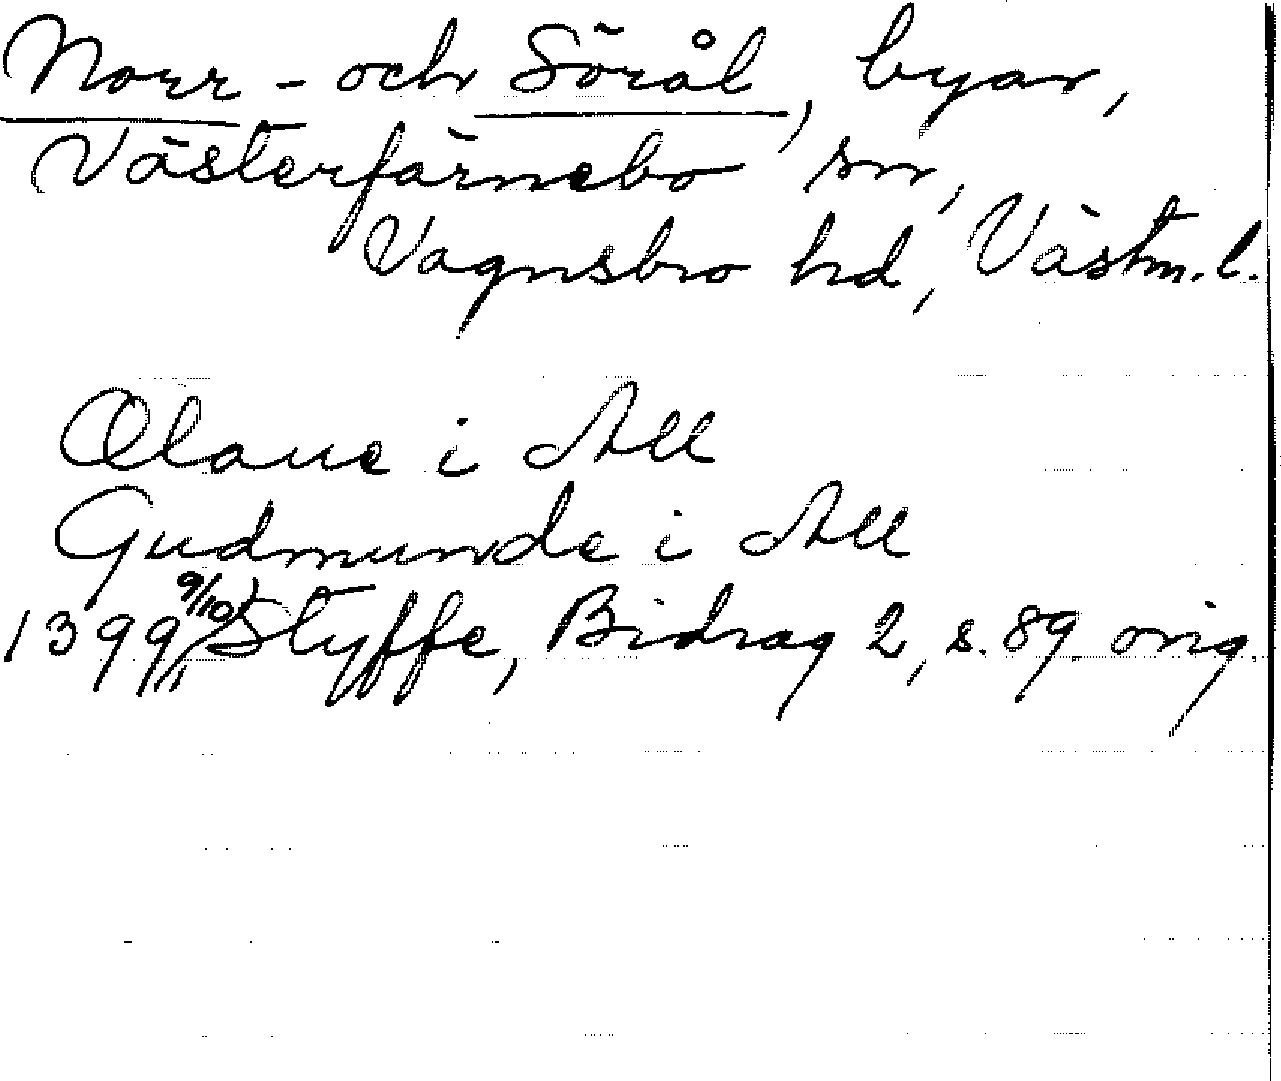 Norr- och Sörål, byar,
Västerfärnebo sn,
Vagnsbro hd, Västm. l.
Olaue i All
Gudmunde i All
1399 9/10 Styffe, Bidrag 2, s. 89 orig.